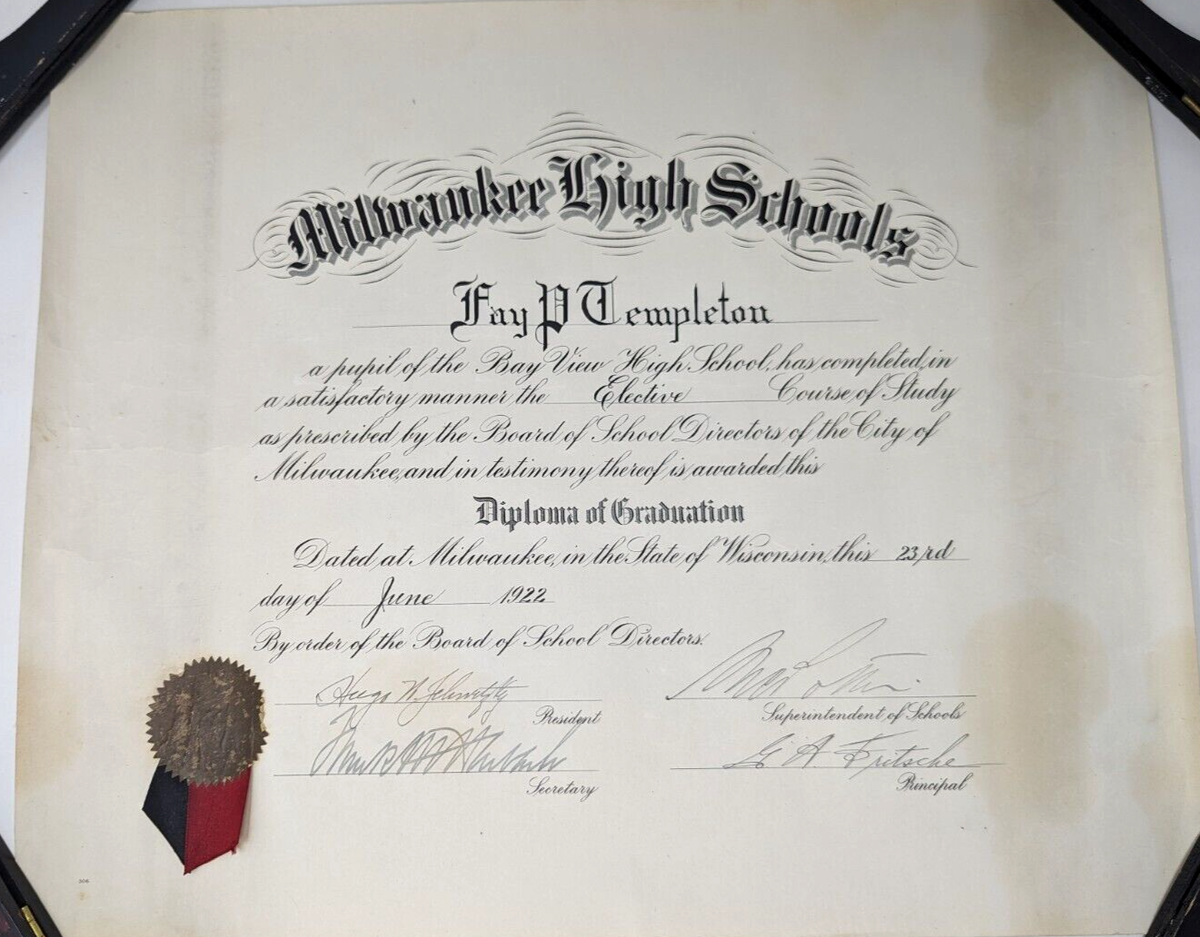 Milwaukee High Schools
Fay P Templeton
a pupil of the Bay View High School, has completed, in
a satisfactory manner the Elective Course of Study
as prescribed by the Board of School Directors of the City of
Milwaukee, and in testimony thereof is awarded this
Diploma of Graduation
Dated at Milwaukee, in the State of Wisconsin, this 23rd
day of June 1922
By order of the Board of School Directors.
Hugo W.
President
Superintendent of Schools
Secretary
G. A. Fritsche
Principal